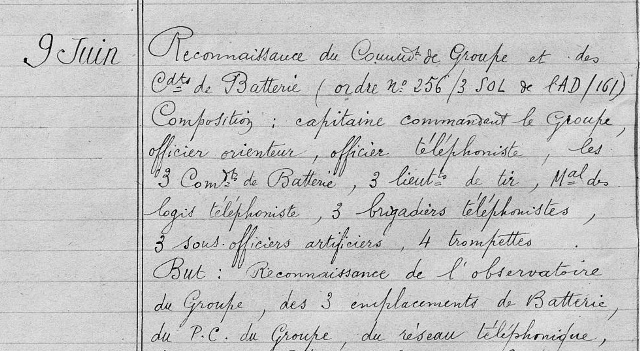 9 Juin
Reconnaissance du Commdt de Groupe et des
Cdts de Batterie (ordre no 256/3 SOL de l'AD/161)
Composition : capitaine commandant le Groupe,
officier orienteur, officier téléphoniste, les
3 Comdts de Batterie, 3 lieutts de tir, Mal des
logis téléphoniste, 3 brigadiers téléphonistes,
3 sous-officiers artificiers, 4 trompettes.
But : Reconnaissance de l'observatoire
du Groupe, des 3 emplacements de Batterie,
du P.C. du Groupe, du réseau téléphonique,